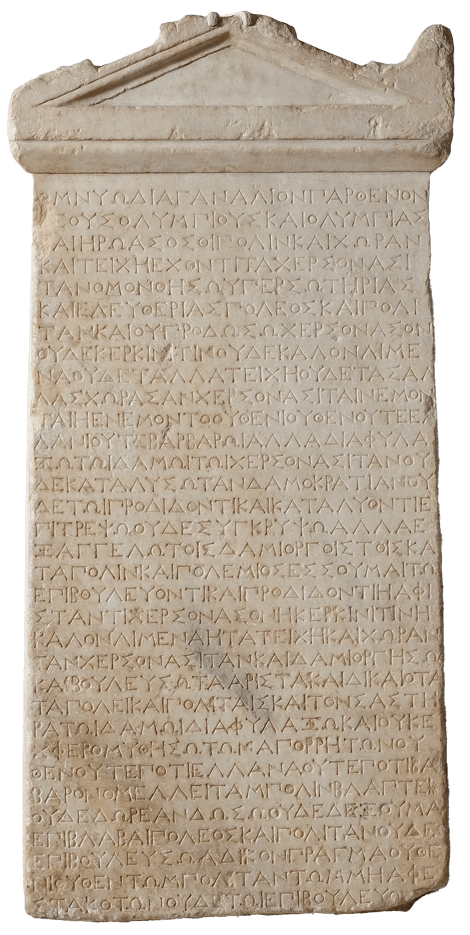 ΟΜΝΥΩΔΙΑΓΑΝΑΛΙΟΝΠΑΡΘΕΝΟΝ
ΕΟΥΣΟΛΥΜΠΙΟΥΣΚΑΙΟΛΥΜΠΙΑΣ
ΚΑΙΗΡΩΑΣΟΣΟΙΠΟΛΙΝΚΑΙΧΩΡΑΝ
ΚΑΙΤΕΙΧΗΕΧΟΝΤΙΤΑΧΕΡΣΟΝΑΣΙ
ΤΑΝΟΜΟΝΟΗΣΩΥΠΕΡΣΩΤΗΡΙΑΣ
ΚΑΙΕΛΕΥΘΕΡΙΑΣΠΟΛΕΟΣΚΑΙΠΟΛΙ
ΤΑΝΚΑΙΟΥΠΡΟΔΩΣΩΧΕΡΣΟΝΑΣΟΝ
ΟΥΔΕΚΕΡΚΙΝΙΤΙΝΟΥΔΕΚΑΛΟΝΛΙΜΕ
ΝΑΟΥΔΕΤΑΛΛΑΤΕΙΧΗΟΥΔΕΤΑΣΑΛ
ΛΑΣΧΩΡΑΣΑΝΧΕΡΣΟΝΑΣΙΤΑΙΝΕΜΟΝ
ΤΑΙΗΕΝΕΜΟΝΤΟΟΥΘΕΝΙΟΥΘΕΝΟΥΤΕΕ
ΛΛΑΝΙΟΥΤΕΒΑΡΒΑΡΩΙΑΛΛΑΔΙΑΦΥΛΑ
ΞΩΤΩΙΔΑΜΩΙΤΩΙΧΕΡΣΟΝΑΣΙΤΑΝΟΥ
ΔΕΚΑΤΑΛΥΣΩΤΑΝΔΑΜΟΚΡΑΤΙΑΝΟΥ
ΔΕΤΩΙΠΡΟΔΙΔΟΝΤΙΚΑΙΚΑΤΑΛΥΟΝΤΙΕ
ΠΙΤΡΕΨΩΟΥΔΕΣΥΓΚΡΥΨΩΑΛΛΑΕ
ΞΑΓΓΕΛΩΤΟΙΣΔΑΜΙΟΡΓΟΙΣΤΟΙΣΚΑ
ΤΑΠΟΛΙΝΚΑΙΠΟΛΕΜΙΟΣΕΣΣΟΥΜΑΙΤΩΙ
ΕΠΙΒΟΥΛΕΥΟΝΤΙΚΑΙΠΡΟΔΙΔΟΝΤΙΗΑΦΙ
ΣΤΑΝΤΙΧΕΡΣΟΝΑΣΟΝΗΚΕΡΚΙΝΙΤΙΝΗ
ΚΑΛΟΝΛΙΜΕΝΑΗΤΑΤΕΙΧΗΚΑΙΧΩΡΑΝ
ΤΑΝΧΕΡΣΟΝΑΣΙΤΑΝΚΑΙΔΑΜΙΟΡΓΗΣΩ
ΚΑΙΒΟΥΛΕΥΣΩΤΑΑΡΙΣΤΑΚΑΙΔΙΚΑΙΟΤΑ
ΤΑΠΟΛΕΙΚΑΙΠΟΛΙΤΑΙΣΚΑΙΤΟΝΣΑΣΤΗ
ΡΑΤΩΙΔΑΜΩΙΔΙΑΦΥΛΑΞΩΚΑΙΟΥΚΕ
ΧΦΕΡΟΜΥΘΗΣΩΤΩΝΑΠΟΡΡΗΤΩΝΟΥ
ΘΕΝΟΥΤΕΠΟΤΙΕΛΛΑΝΑΟΥΤΕΠΟΤΙΒΑ
ΒΑΡΟΝΟΜΕΛΛΕΙΤΑΜΠΟΛΙΝΒΛΑΠΤΕΙΝ
ΟΥΔΕΔΩΡΕΑΝΔΩΣΩΟΥΔΕΔΕΞΟΥΜΑ
ΕΠΙΒΛΑΒΑΙΠΟΛΕΟΣΚΑΙΠΟΛΙΤΑΝΟΥΔΕ
ΕΠΙΒΟΥΛΕΥΣΩΑΔΙΚΟΝΠΡΑΓΜΑΟΥΘΕ
ΝΙΟΥΘΕΝΤΩΜΠΟΛΙΤΑΝΤΩΜΜΗΑΦΕ
ΣΤΑΚΟΤΩΝΟΥΔΕΤΩΙΕΠΙΒΟΥΛΕΥΟΝ